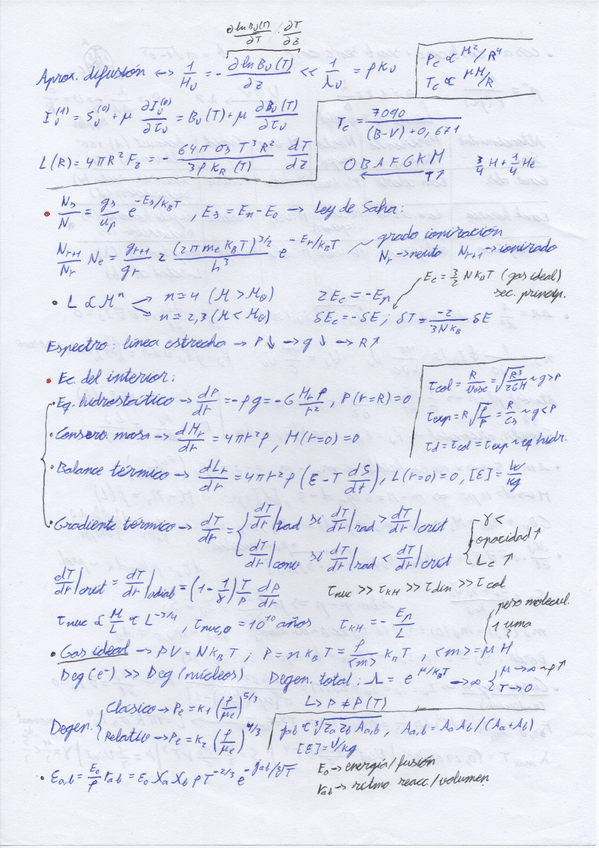 ∂ln B_ν(T)/∂T · ∂T/∂z
Aprox. difusión ↔ 1/H_ν = -∂ln B_ν(T)/∂z << 1/λ_ν = ρ κ_ν
P_c ∝ M²/R⁴
T_c ∝ μM/R
I_ν^(1) = S_ν^(0) + μ ∂I_ν^(0)/∂τ_ν = B_ν(T) + μ ∂B_ν(T)/∂τ_ν
T_c = 7090/((B-V)+0,671)
L(R) = 4πR² F_z = - 64πσ_B T³R²/(3ρ κ_R(T)) dT/dz
O B A F G K M
3/4 H + 1/4 He
• N_s/N = g_s/u_p e^(-E_s/k_BT) , E_s = E_n - E_0 → Ley de Saha:
N_{r+1}/N_r N_e = g_{r+1}/g_r 2 (2π m_e k_B T)^(3/2)/h³ e^(-E_r/k_BT)
grado ionización
N_r → neutro N_{r+1} → ionizado
• L ∝ Mⁿ
n ≈ 4 (M > M_⊙)
n ≈ 2,3 (M < M_⊙)
2E_c = -E_p
E_c = 3/2 N k_B T (gas ideal)
sec. princip.
δE_c = -δE ; δT = -2/(3Nk_B) δE
Espectro: línea estrecha → P↓ → g↓ → R↑
• Ec. del interior:
• Eq. hidrostático → dP/dr = -ρg = -G M_r ρ/r² , P(r=R) = 0
• Conserv. masa → dM_r/dr = 4πr²ρ , M(r=0) = 0
• Balance térmico → dL_r/dr = 4πr²ρ (ε - T dS/dt) , L(r=0) = 0, [ε] = W/kg
τ_col = R/v_esc = √(R³/2GM) ~ g > P
τ_exp = R√(ρ/P) = R/c_s ~ g < P
τ_d = τ_col = τ_exp ~ eq hidr.
• Gradiente térmico → dT/dr =
dT/dr|rad si dT/dr|rad > dT/dr|crit
dT/dr|conv si dT/dr|rad < dT/dr|crit
γ <
opacidad ↑
L_c ↑
dT/dr|crit = dT/dr|adiab = (1 - 1/γ) T/P dP/dr
τ_nuc >> τ_KH >> τ_din >> τ_col
τ_nuc ∝ M/L ∝ L^(-3/4) , τ_nuc,⊙ = 10¹⁰ años
τ_KH = -E_p/L
peso molecul.
1 uma
• Gas ideal → PV = N k_B T ; P = n k_B T = ρ/<m> k_B T , <m> = μ H
Deg(e⁻) >> Deg(núcleos)
Degen. total : Λ = e^(μ/k_BT) → ∞
μ → ∞ ~ ρ↑
T → 0
L> P ≠ P(T)
Degen.
Clásico → P_e = K₁ (ρ/μ_e)^(5/3)
Relativ → P_e = K₂ (ρ/μ_e)^(4/3)
ρ_ab ∝ ∛(Z_a² Z_b² A_a,b) , A_a,b = A_a A_b/(A_a+A_b)
[ε] = W/kg
• ε_a,b = E_0/ρ r_a,b = ε_0 X_a X_b ρ T^(-2/3) e^(-g_ab/∛T)
E_0 → energía/fusión
r_ab → ritmo reacc/volumen